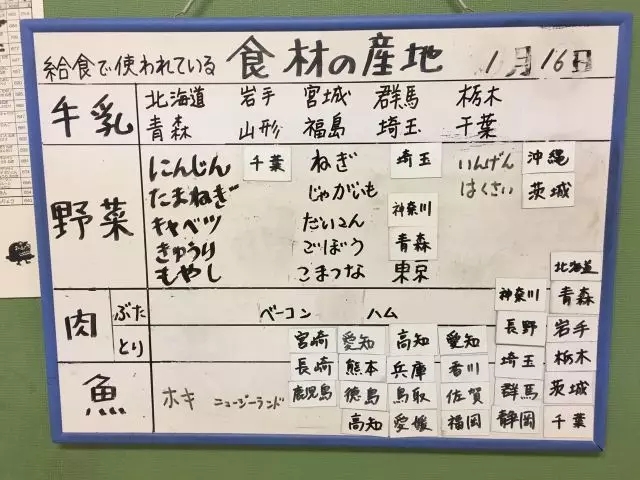 給食で使われている 食材の産地 1月16日
牛乳 北海道 岩手 宮城 群馬 栃木
青森 山形 福島 埼玉 千葉
野菜 にんじん 千葉 ねぎ 埼玉 いんげん 沖縄
たまねぎ じゃがいも はくさい 茨城
キャベツ だいこん 神奈川
きゅうり ごぼう 青森
もやし こまつな 東京
北海道
肉 ぶた ベーコン ハム 神奈川 青森
とり 宮崎 愛知 高知 愛知 長野 岩手
長崎 熊本 兵庫 香川 埼玉 栃木
魚 ホキ ニュージーランド 鹿児島 徳島 鳥取 佐賀 群馬 茨城
高知 愛媛 福岡 静岡 千葉